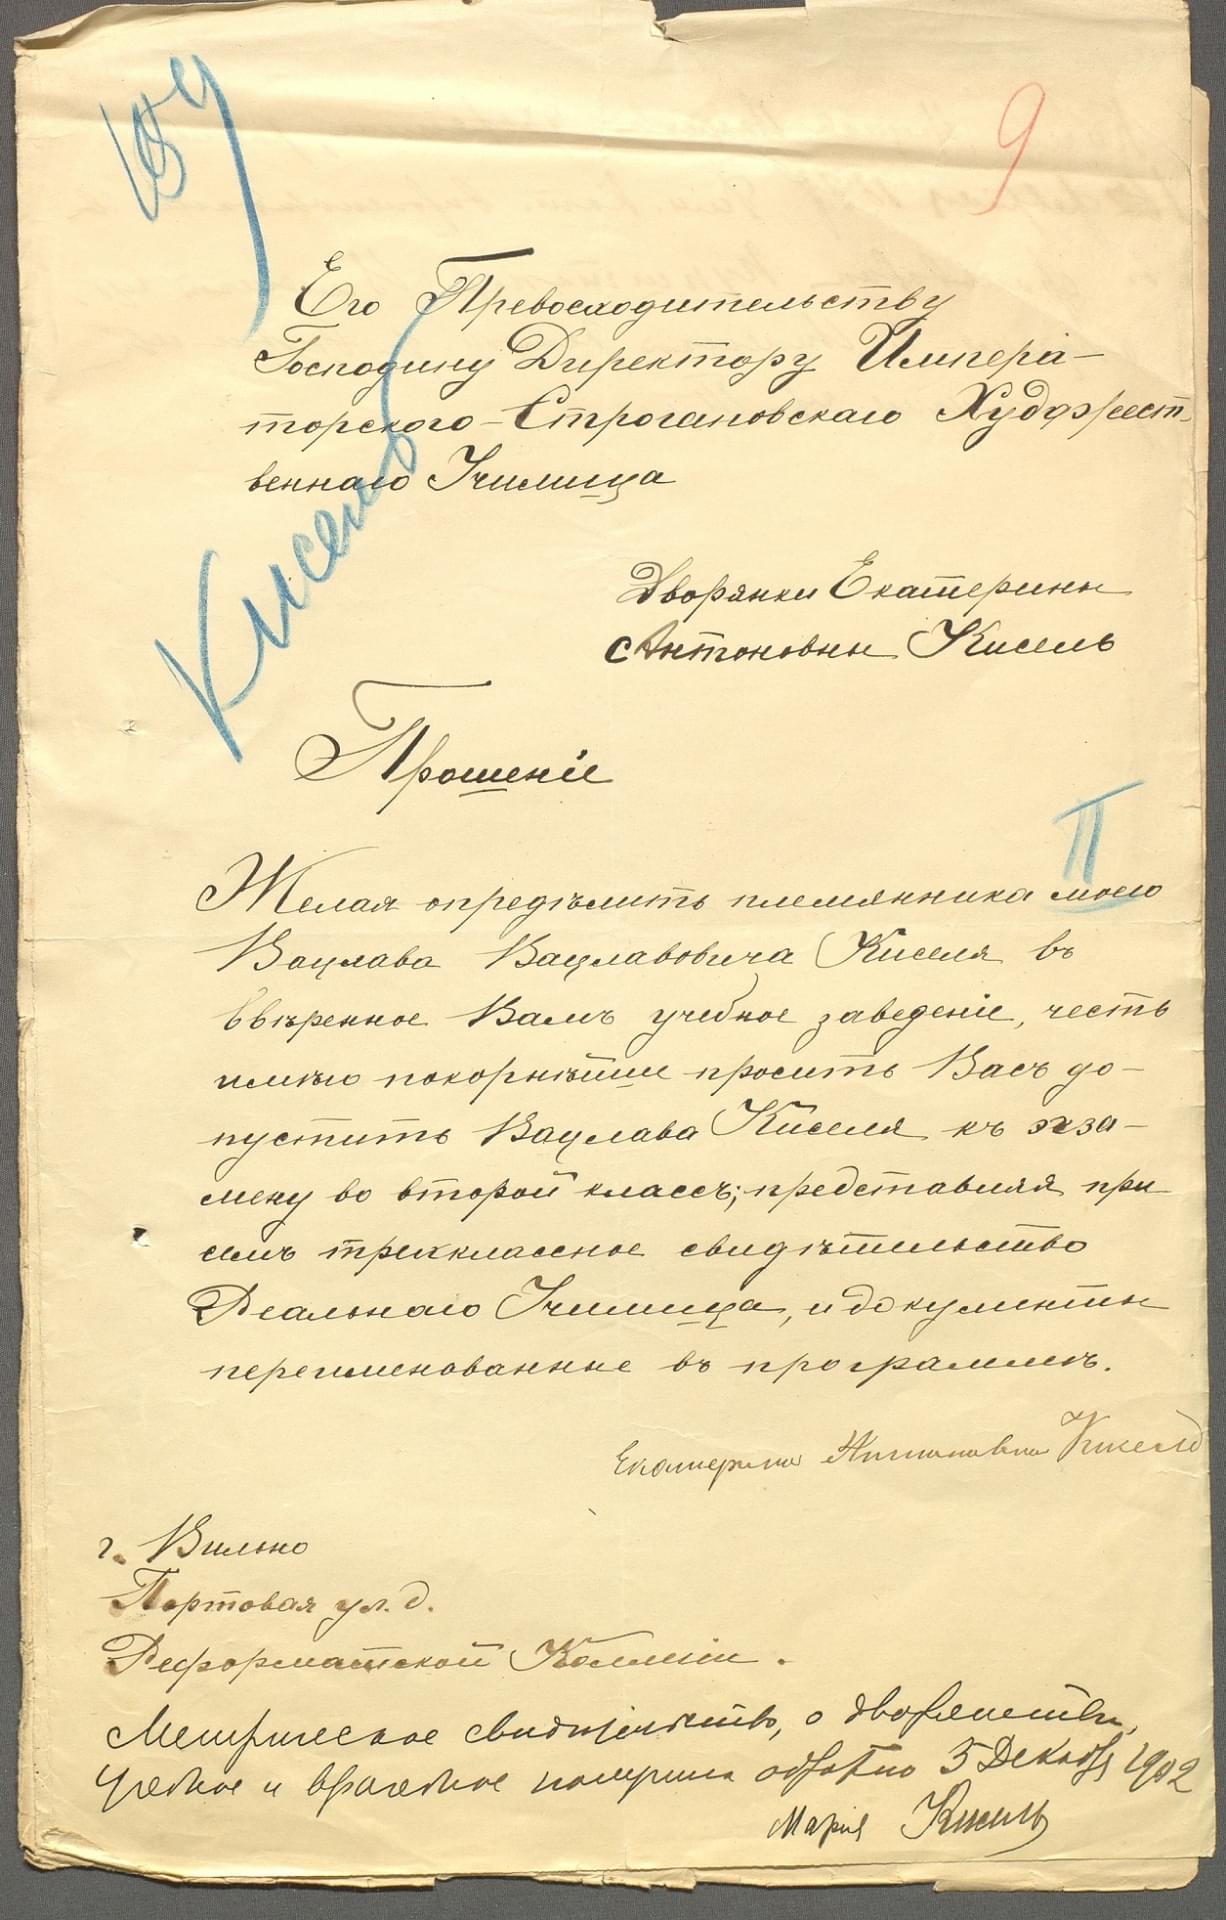 9
Его Превосходительству
Господину Директору Импера-
торского-Строгановскаго Художест-
веннаго Училища
Кисель
Дворянки Екатерины
Антоновны Кисель
Прошеніе
II
Желая опредѣлить племянника моего
Вацлава Вацлавовича Киселя въ
ввѣренное Вамъ учебное заведеніе, честь
имѣю покорнѣйше просить Васъ до-
пустить Вацлава Киселя къ экза-
мену во второй классъ; представляя при
семъ трехклассное свидѣтельство
Реальнаго Училища, и документы
переименованные въ программѣ.
Екатерина Антоновна Кисель
г. Вильно
Портовая ул. д.
Реформатской Коллегіи.
Метрическое свидѣтельство, о дворянствѣ,
учебное и врачебное получила обратно 5 Декабря 1902
Марія Кисель